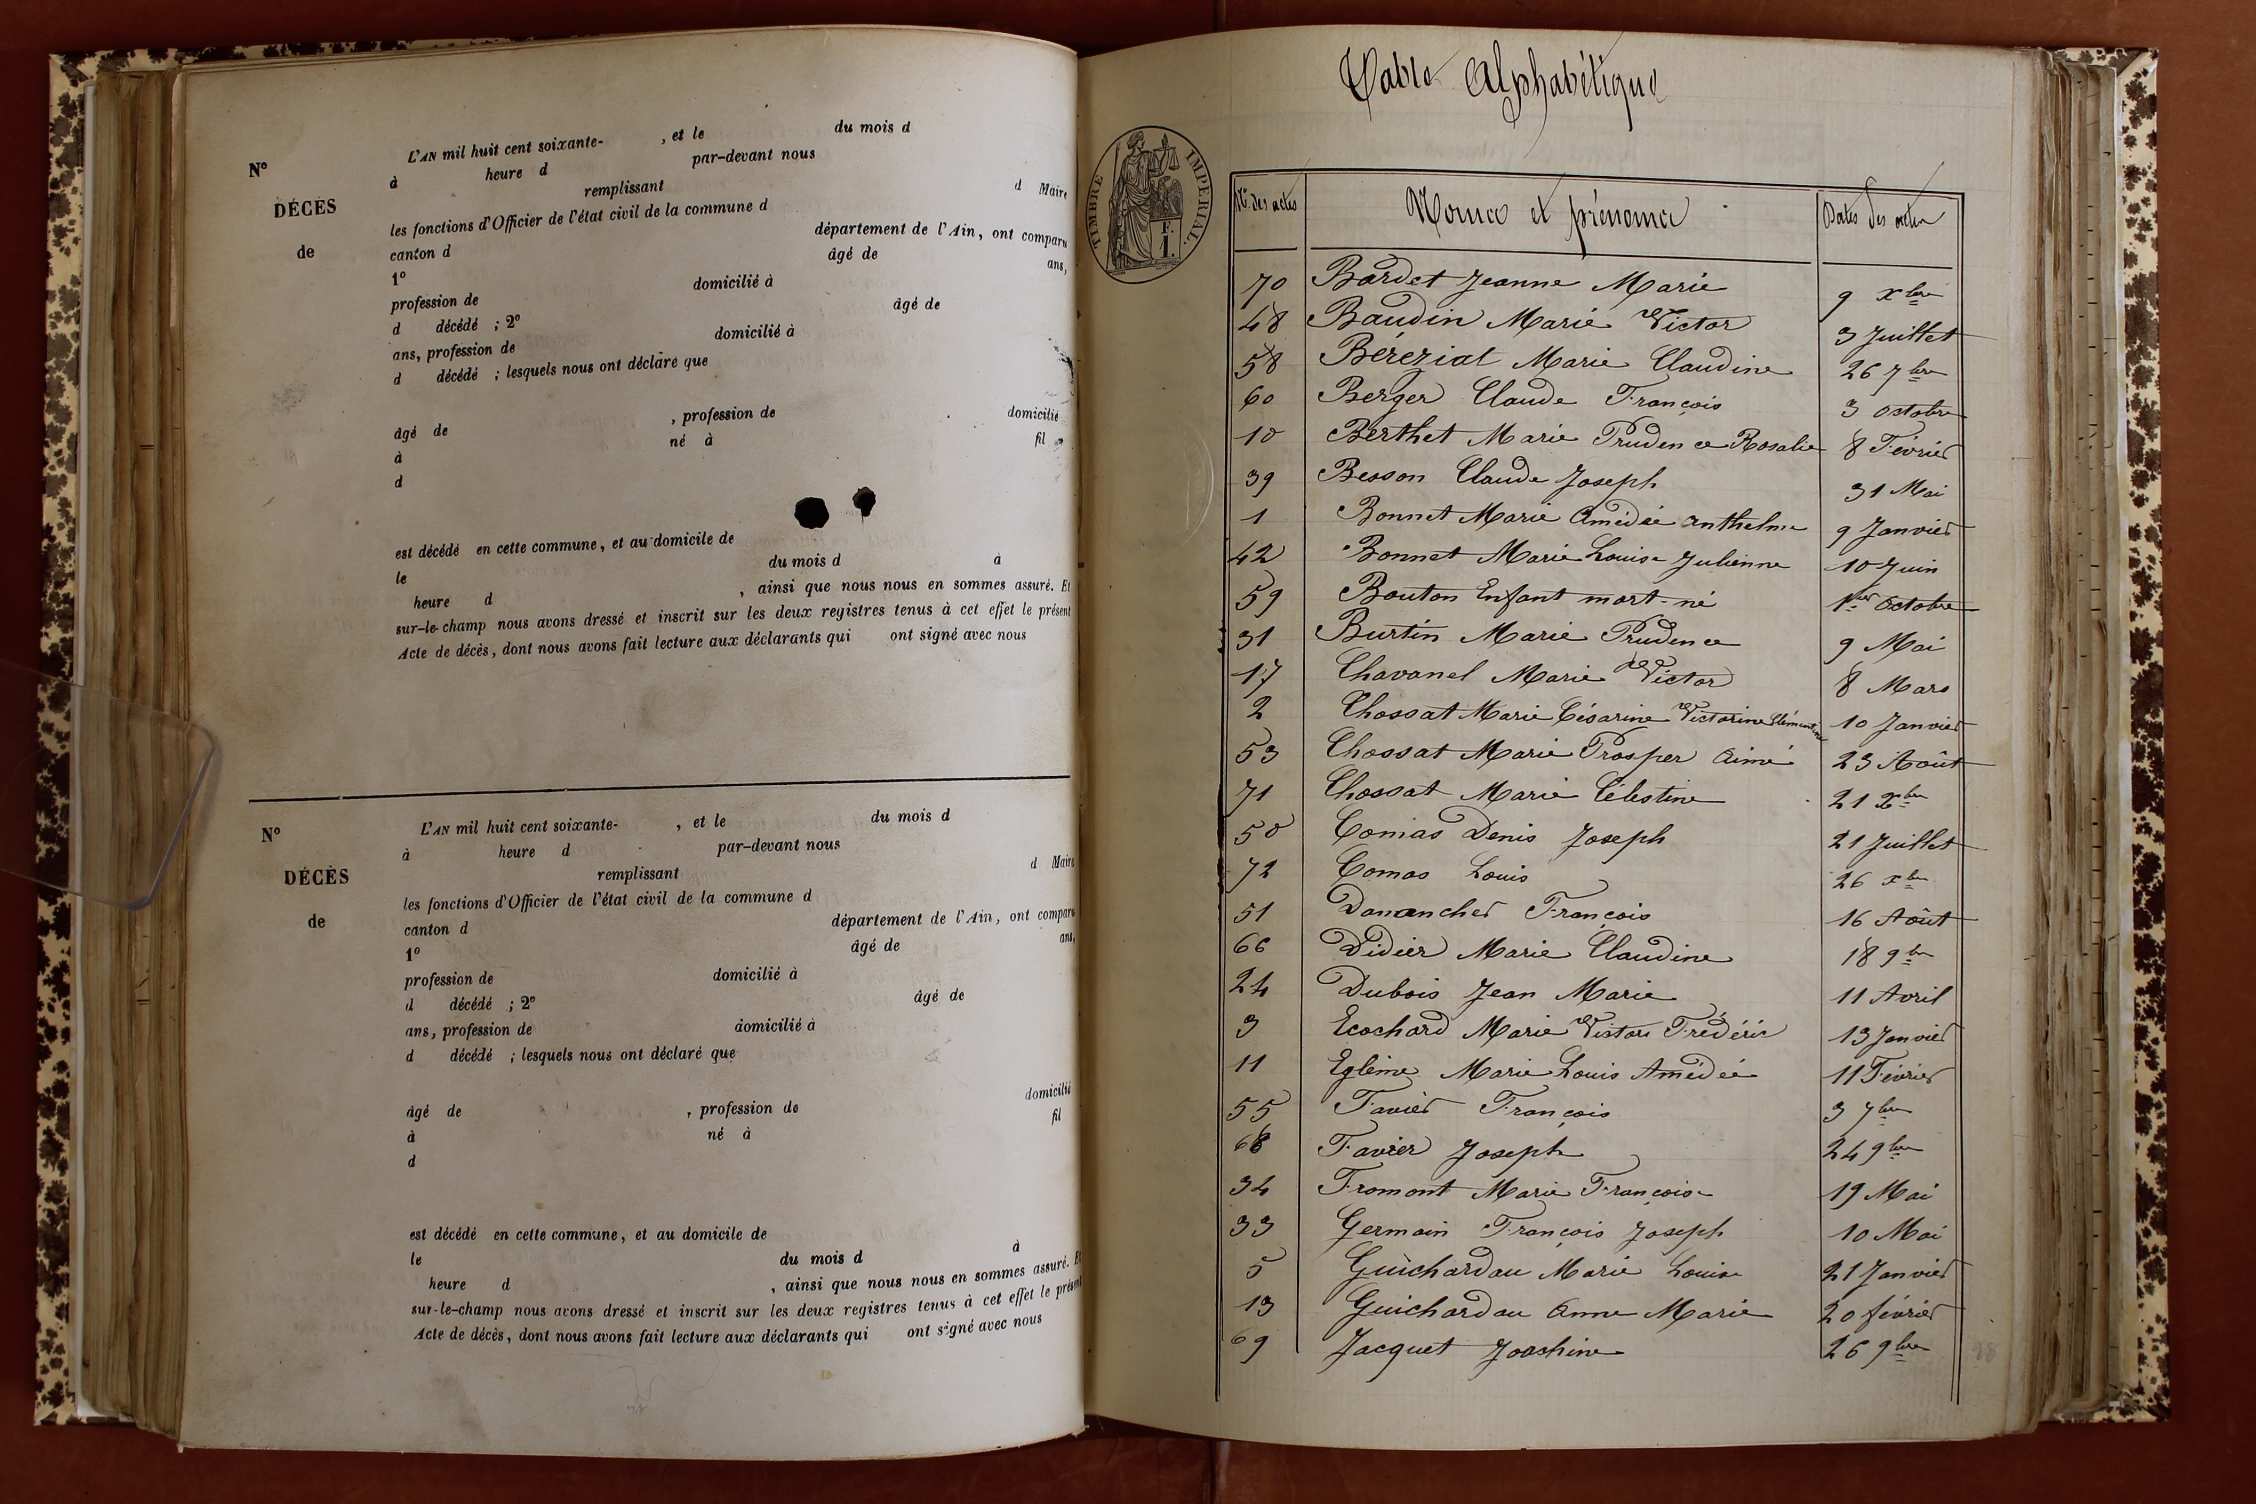 N°
DÉCÈS
de
L'AN mil huit cent soixante- , et le du mois d
à heure d par-devant nous
remplissant d Maire
les fonctions d'Officier de l'état civil de la commune d
canton d département de l'Ain, ont comparu
1° âgé de ans,
profession de domicilié à
d décédé ; 2° âgé de
ans, profession de domicilié à
d décédé ; lesquels nous ont déclaré que
âgé de , profession de domicilié
à né à fil
d
est décédé en cette commune, et au domicile de
le du mois d à
heure d , ainsi que nous nous en sommes assuré. Et
sur-le-champ nous avons dressé et inscrit sur les deux registres tenus à cet effet le présent
Acte de décès, dont nous avons fait lecture aux déclarants qui ont signé avec nous
N°
DÉCÈS
de
L'AN mil huit cent soixante- , et le du mois d
à heure d par-devant nous
remplissant d Maire
les fonctions d'Officier de l'état civil de la commune d
canton d département de l'Ain, ont comparu
1° âgé de ans,
profession de domicilié à
d décédé ; 2° âgé de
ans, profession de domicilié à
d décédé ; lesquels nous ont déclaré que
âgé de , profession de domicilié
à né à fil
d
est décédé en cette commune, et au domicile de
le du mois d à
heure d , ainsi que nous nous en sommes assuré. Et
sur-le-champ nous avons dressé et inscrit sur les deux registres tenus à cet effet le présent
Acte de décès, dont nous avons fait lecture aux déclarants qui ont signé avec nous
Table Alphabétique
TIMBRE IMPERIAL.
F.
1.
N° des actes Noms et prénoms Dates des actes
70 Bardet Jeanne Marie 9 Xbre
48 Baudin Marie Victor 3 Juillet
58 Béréziat Marie Claudine 26 7bre
60 Berger Claude François 3 Octobre
10 Berthet Marie Prudence Rosalie 8 Février
39 Besson Claude Joseph 31 Mai
1 Bonnet Marie Amédée Anthelme 9 Janvier
42 Bonnet Marie Louise Julienne 10 Juin
59 Bouton Enfant mort-né 1er Octobre
31 Burtin Marie Prudence 9 Mai
17 Chavanel Marie Victor 8 Mars
2 Chossat Marie Césarine Victorine Clémentine 10 Janvier
53 Chossat Marie Prosper Aimé 23 Août
71 Chossat Marie Célestine 21 Xbre
50 Comas Denis Joseph 21 Juillet
72 Comas Louis 26 Xbre
51 Danancher François 16 Août
66 Didier Marie Claudine 18 9bre
24 Dubois Jean Marie 11 Avril
3 Ecochard Marie Victor Frédéric 13 Janvier
11 Eglème Marie Louis Amédée 11 Février
55 Favier François 3 7bre
68 Favier Joseph 24 9bre
34 Fromont Marie Françoise 19 Mai
33 Germain François Joseph 10 Mai
5 Guichardau Marie Louise 21 Janvier
13 Guichardau Anne Marie 20 février
69 Jacquet Joachine 26 9bre